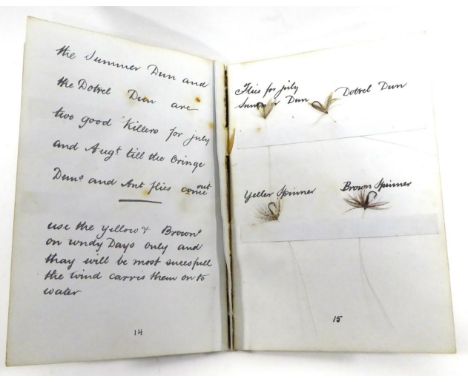 the Summer Dun and
the Dotrel Dun are
two good Killers for july
and Augt till the Oringe
Duns and Ant flies come out
use the yellow & Brown
on windy Days only and
thay will be most succesfull
the wind carres them on to
water
14
Flies for july
Summer Dun
Dotrel Dun
Yeller Spinner
Brown Spinner
15